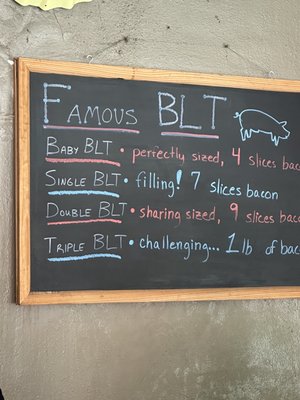 FAMOUS BLT
BABY BLT • perfectly sized, 4 slices baco
SINGLE BLT • filling! 7 slices bacon
DOUBLE BLT • sharing sized, 9 slices baco
TRIPLE BLT • challenging... 1 lb of bac